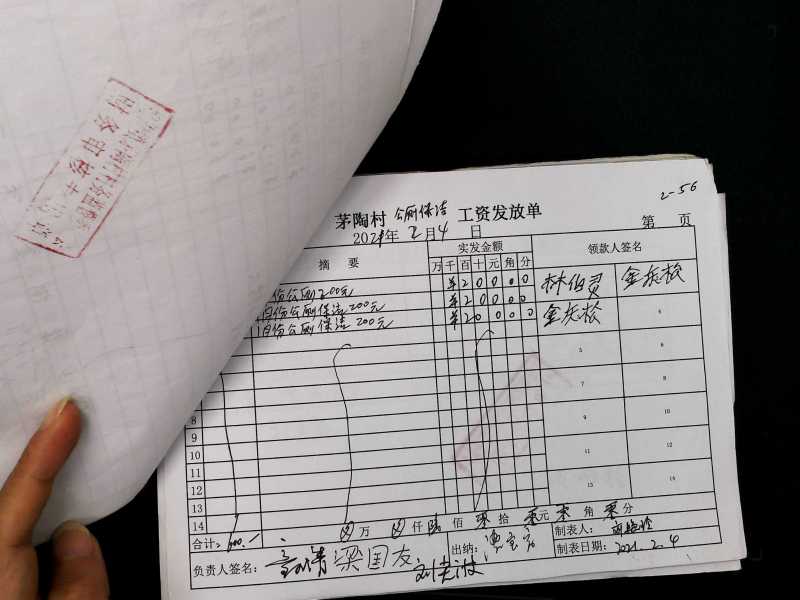 2-56
茅陶村 公厕保洁 工资发放单
2021年 2月4日
第 页
摘 要
实发金额
领款人签名
万 千 百 十 元 角 分
份公厕 200元
¥ 2 0 0 0 0
林伯灵
金庆松
月份公厕保洁 200元
¥ 2 0 0 0 0
1月份公厕保洁 200元
¥ 2 0 0 0 0
金庆松
4
5
6
7
8
8
9
10
9
10
11
12
11
12
13
14
13
14
合计: 600.-
万 仟 陆 佰 零 拾 零 元 零 角 零 分
制表人:
负责人签名: 梁国友
出纳:
制表日期: 2021.2.4
财务审核